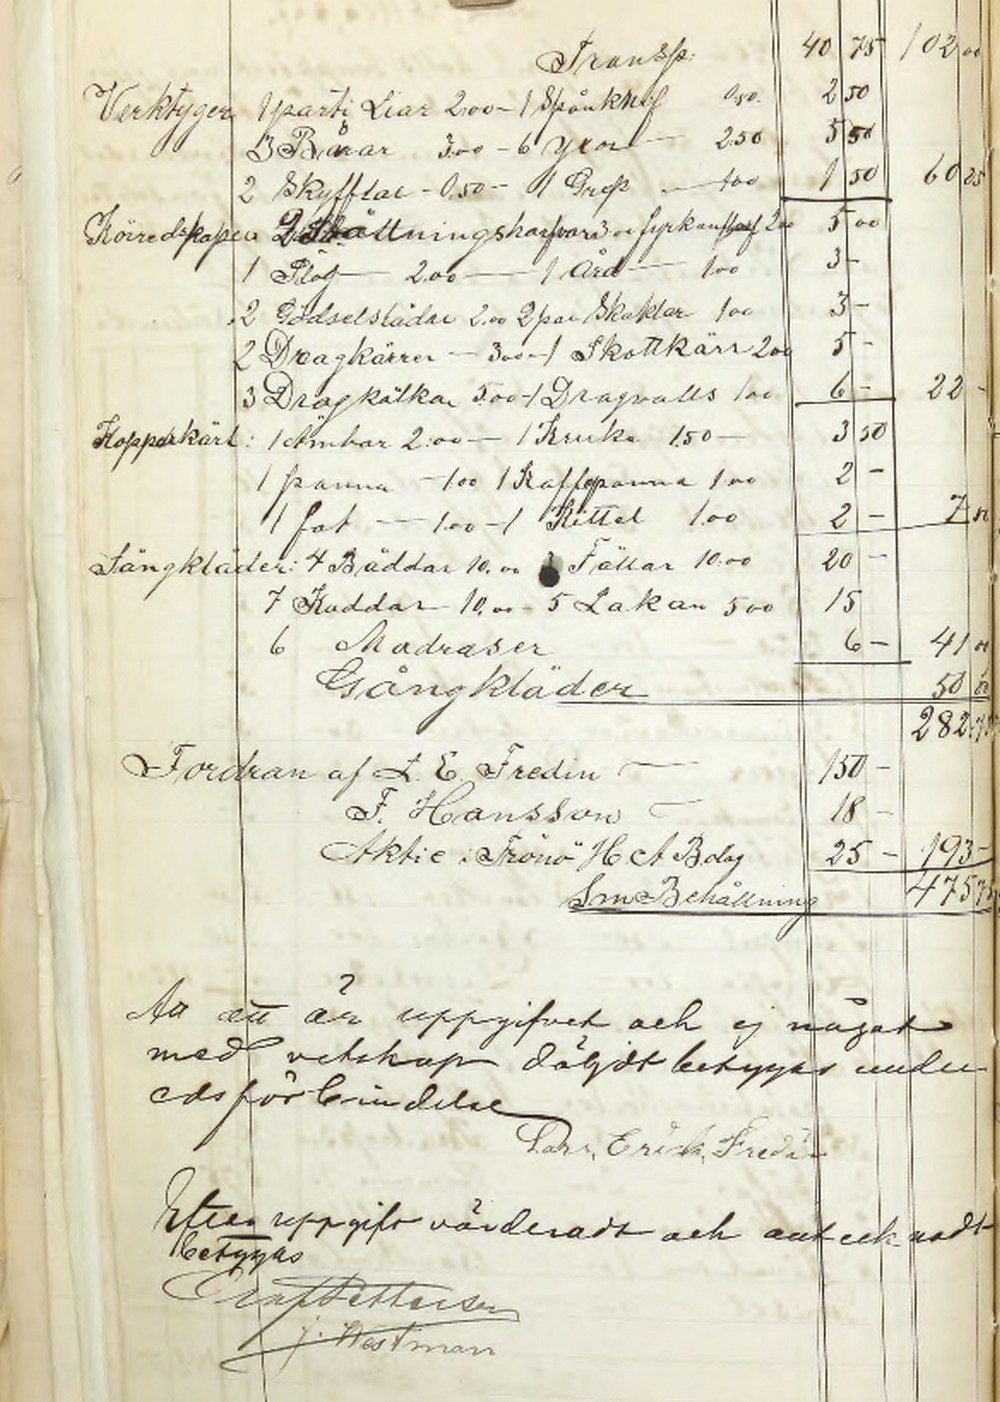 Transp: 40 75 102 00
Verktyger 1 parti Liar 2.00 – 1 Spånkhyf 0.50. 2 50
3 Bårar 3.00 – 6 Yxor 2.50 5 50
2 Skyfflar – 0.50 – 1 Grep 1.00 1 50 60 25
Köiredskaper harfvar 3.00 fyrkant harf 2.00 5 00
1 Plog 2.00 1 Ård 1.00 3 –
2 Gödselslädar 2.00 2 par Skaklar 1.00 3 –
2 Dragkärrer – 3.00 – 1 Skottkärr 2.00 5 –
3 Dragkälkar 5.00 – 1 Dragvälts 1.00 6 – 22 –
Kopparkärl: 1 Ämbar 2.00 – 1 Kruka 1.50 – 3 50
1 panna – 1.00 1 Kaffepanna 1.00 2 –
1 fat – 1.00 – 1 Kittel 1.00 2 – 7 50
Sängkläder: 4 Bäddar 10.00 Fällar 10.00 20 –
7 Kuddar 10.00 – 5 Lakan 5.00 15
6 Madraser 6 – 41 00
Gångkläder 50 00
282 75
Fordran af L. E. Fredin 150 –
F. Hansson 18 –
Aktie i Trönö H A Bolag 25 – 193 –
Sm Behållning 475 75
Att ätt är uppgifvet och ej något
med vetskap döljdt betygas under
edsförbindelse
Lars, Erick, Fredin
Efter uppgift värderadt och antecknadt
betygas
Olof Pettersson
J. Westman